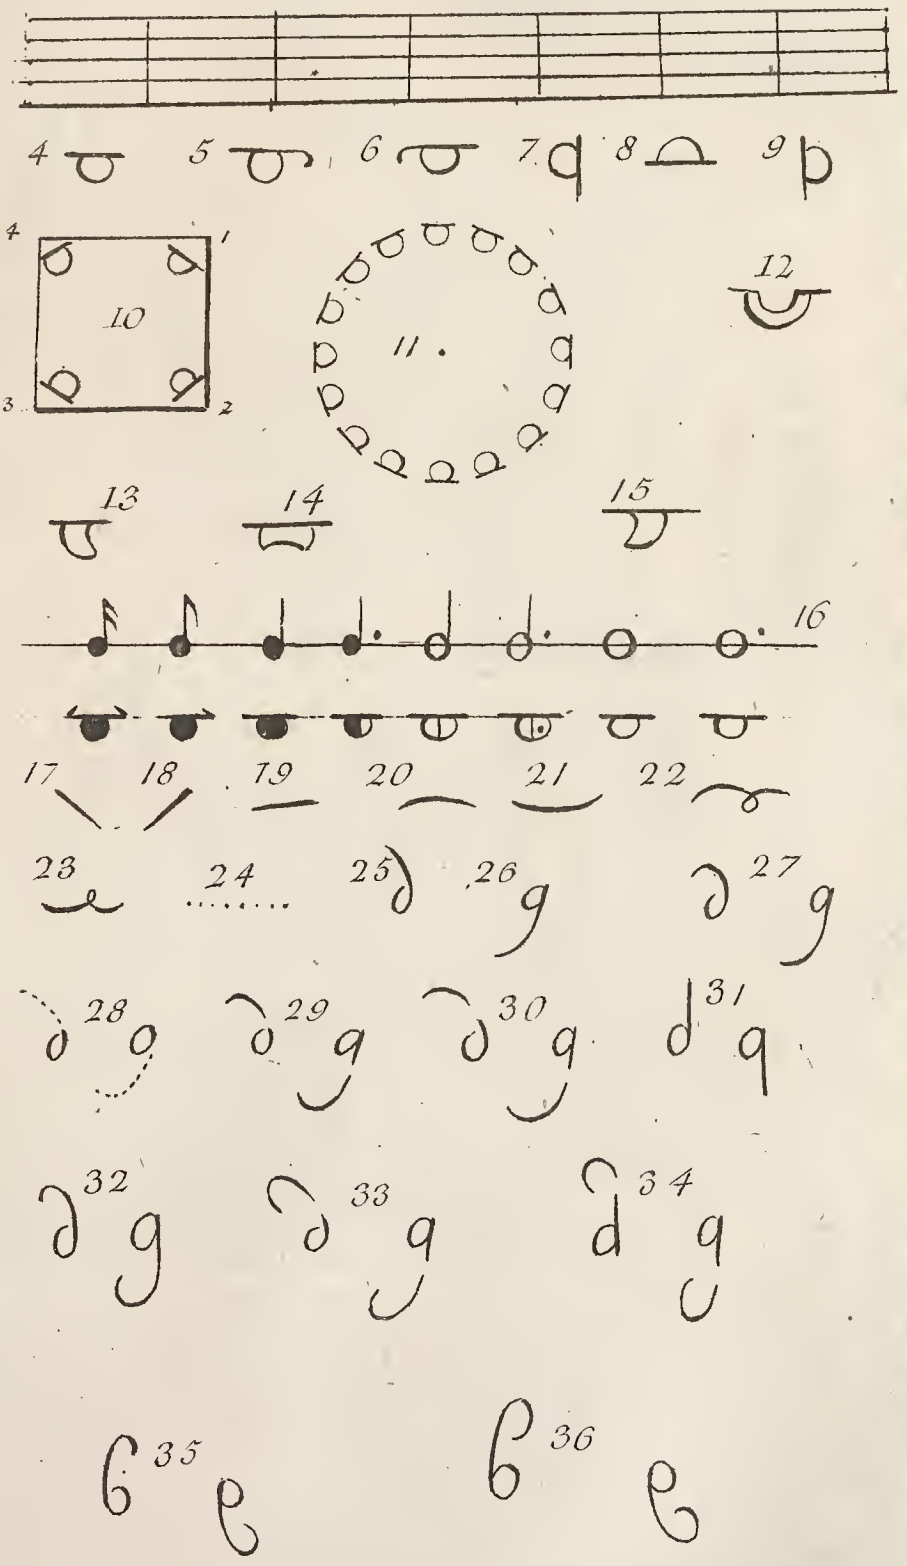 4 5 6 7 8 9
4 1
12
10
11
3 2
13 14 15
16
17 18 19 20 21 22
23 24 25 26 27
28 29 30 31
32 33 34
35 36